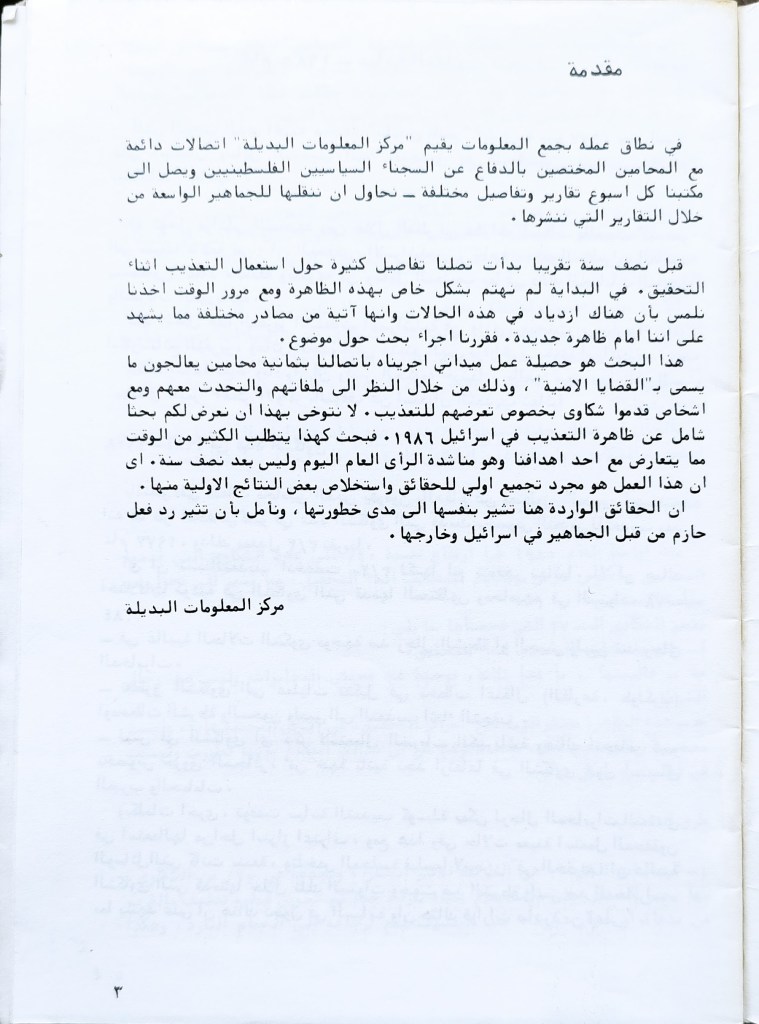 مقدمة
في نطاق عمله بجمع المعلومات يقيم "مركز المعلومات البديلة" اتصالات دائمة
مع المحامين المختصين بالدفاع عن السجناء السياسيين الفلسطينيين ويصل الى
مكتبنا كل اسبوع تقارير وتفاصيل مختلفة ــ نحاول ان ننقلها للجماهير الواسعة من
خلال التقارير التي ننشرها.
قبل نصف سنة تقريبا بدأت تصلنا تفاصيل كثيرة حول استعمال التعذيب اثناء
التحقيق. في البداية لم نهتم بشكل خاص بهذه الظاهرة ومع مرور الوقت اخذنا
نلمس بأن هناك ازدياد في هذه الحالات وانها آتية من مصادر مختلفة مما يشهد
على اننا امام ظاهرة جديدة. فقررنا اجراء بحث حول موضوع.
هذا البحث هو حصيلة عمل ميداني اجريناه باتصالنا بثمانية محامين يعالجون ما
يسمى بـ"القضايا الامنية"، وذلك من خلال النظر الى ملفاتهم والتحدث معهم ومع
اشخاص قدموا شكاوى بخصوص تعرضهم للتعذيب. لا نتوخى بهذا ان نعرض لكم بحثا
شامل عن ظاهرة التعذيب في اسرائيل ١٩٨٦. فبحث كهذا يتطلب الكثير من الوقت
مما يتعارض مع احد اهدافنا وهو مناشدة الرأى العام اليوم وليس بعد نصف سنة. اى
ان هذا العمل هو مجرد تجميع اولي للحقائق واستخلاص بعض النتائج الاولية منها.
ان الحقائق الواردة هنا تشير بنفسها الى مدى خطورتها، ونأمل بأن تثير رد فعل
حازم من قبل الجماهير في اسرائيل وخارجها.
مركز المعلومات البديلة
٣